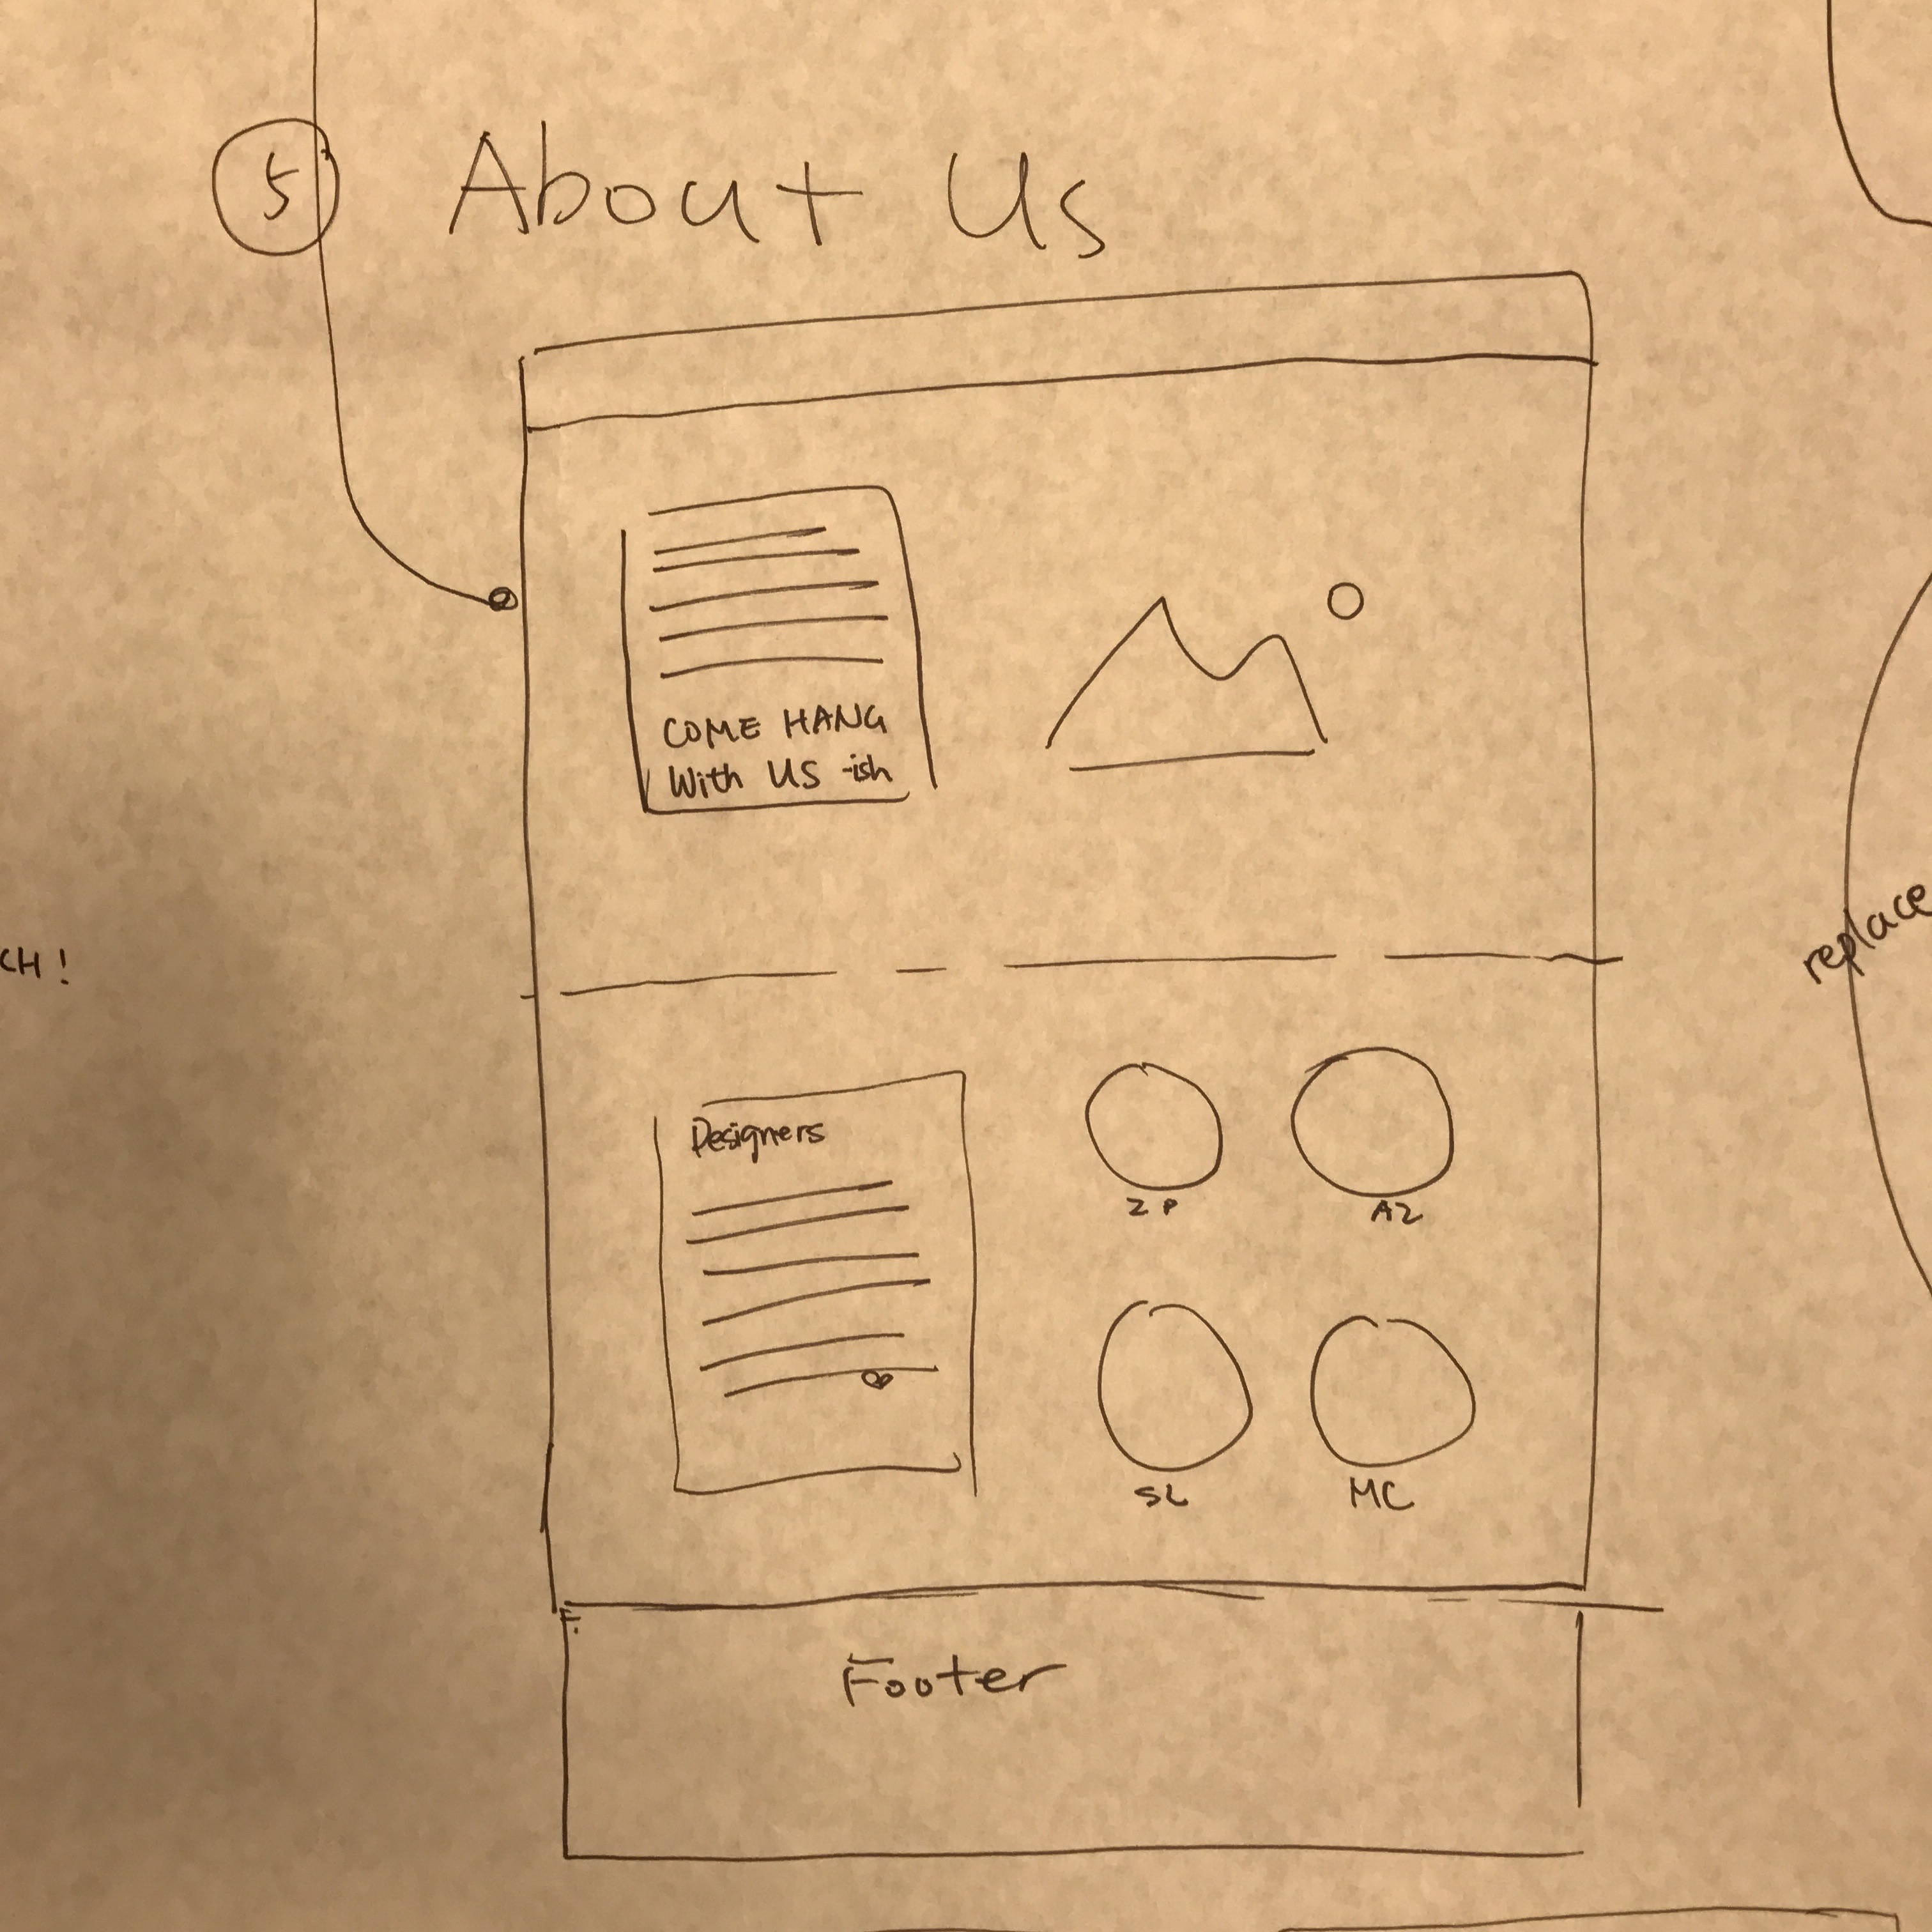 5 About Us
COME HANG
With US -ish
CH!
replace
Designers
ZP AZ
SL MC
Footer